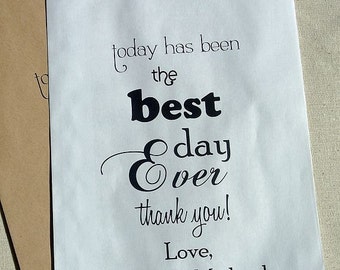 today has been
the
best
day
Ever
thank you!
Love,